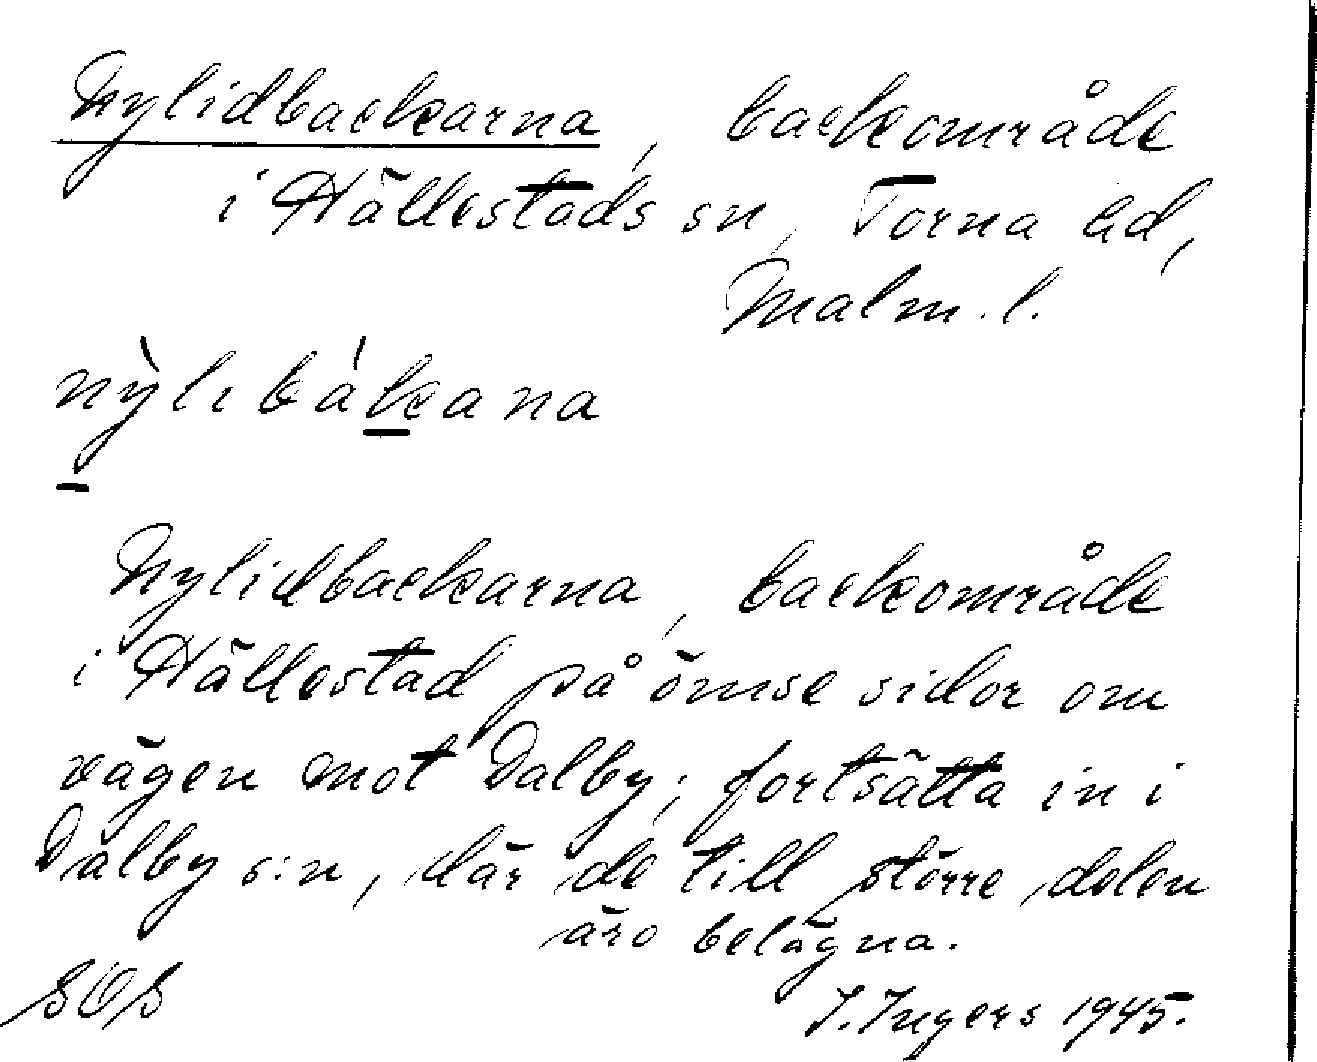 Nylidbackarna, backområde
i Hällestads sn, Torna hd,
Malm. l.
nỳlibákana
Nylidbackarna, backområde
i Hällestad på ömse sidor om
vägen mot Dalby; fortsätta in i
Dalby s:n, där de till större delen
äro belägna.
SOS
I. Ingers 1945.